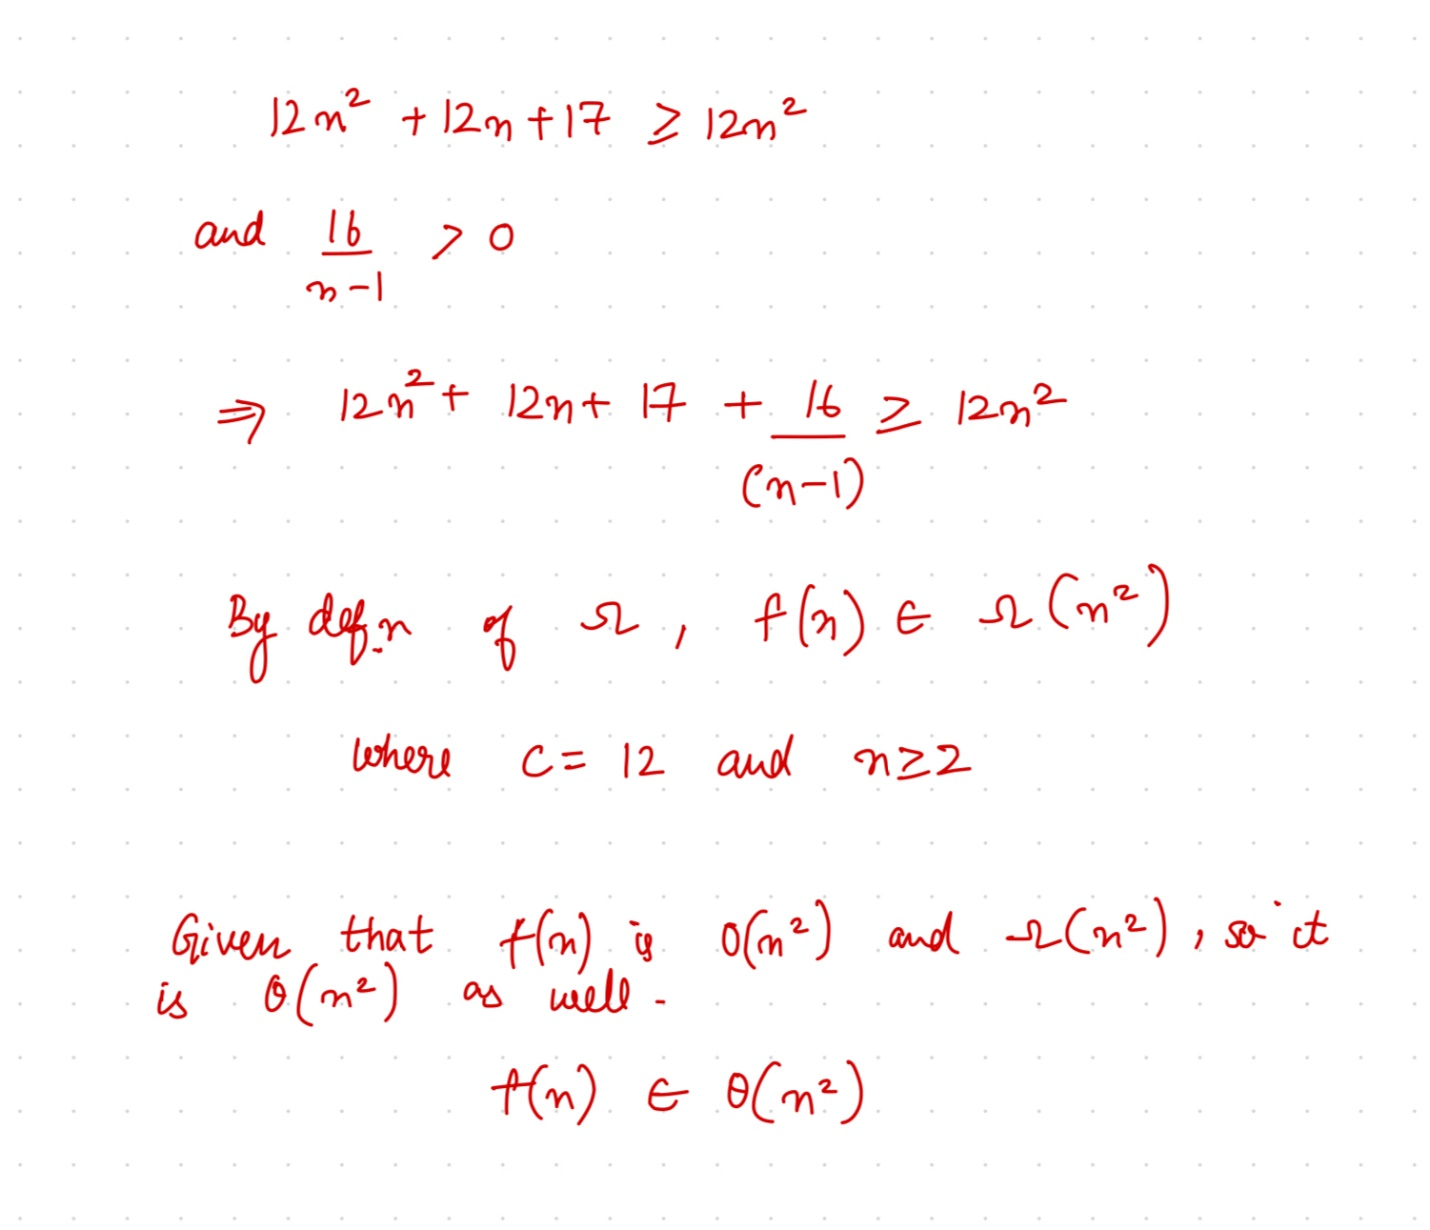 12n² + 12n + 17 ≥ 12n²
and 16/(n-1) > 0
⇒ 12n² + 12n + 17 + 16/(n-1) ≥ 12n²
By def.n of Ω, f(n) ∈ Ω(n²)
where c = 12 and n ≥ 2
Given that f(n) is O(n²) and Ω(n²), so it
is θ(n²) as well.
f(n) ∈ θ(n²)